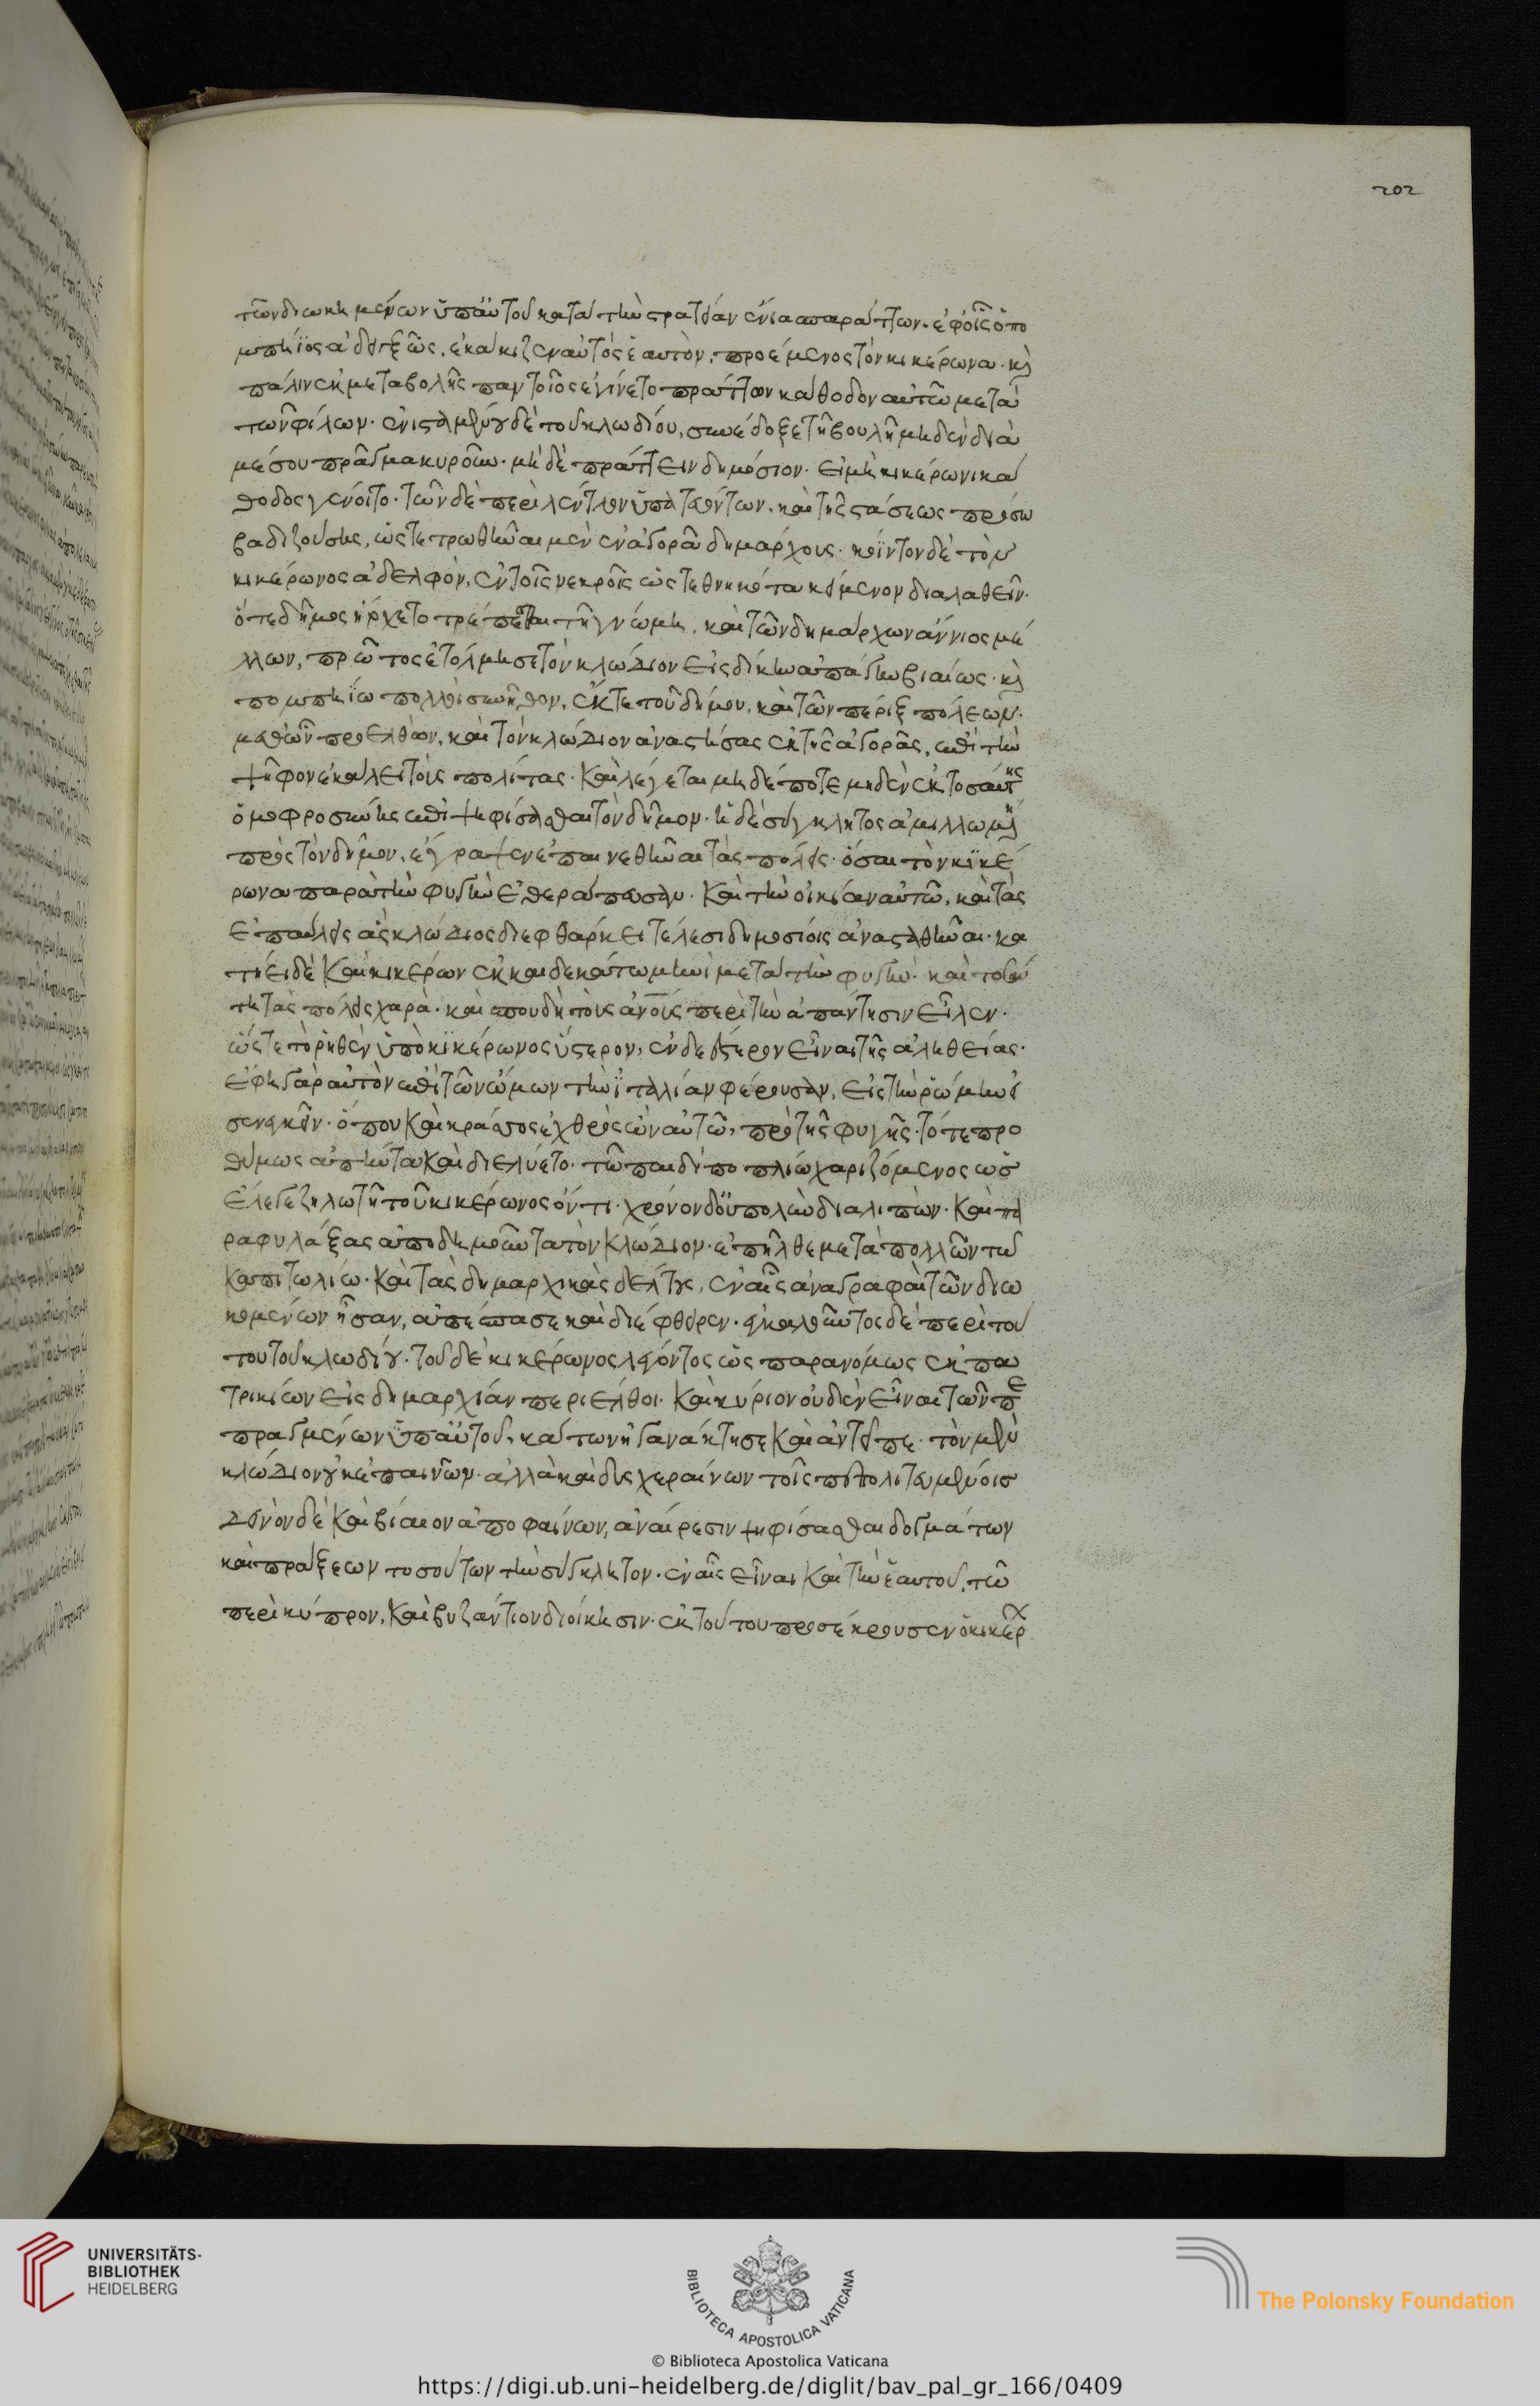 τῶν διωκημένων ὑπ' αὐτοῦ κατὰ τὴν στρατείαν ἔνια σπαράττων. ἐφ' οἷς ὁ πο
μπήϊος ἀδοξῶς. ἐκάκιζεν αὐτὸς ἑαυτὸν, προέμενος τὸν κικέρωνα. κὶ
πάλιν ἐκ μεταβολῆς παντοῖος ἐγίνετο πράττων κάθοδον αὐτῶ μετὰ
τῶν φίλων. ἐνισταμένου δὲ τοῦ κλωδίου, συνέδοξε τῆ βουλῆ μηδὲν διὰ
μέσου πρᾶγμα κυροῦν. μὴ δὲ πράττειν δημόσιον. εἰ μὴ κικέρωνι κά
θοδος γένοιτο. τῶν δὲ περὶ λέντλον ὑπατευόντων, καὶ τῆς στάσεως πρόσω
βαδιζούσης, ὥς τε τρωθῆναι μὲν ἐν ἀγορᾶ δημάρχους. κοϊντον δὲ τὸν
κικέρωνος ἀδελφὸν, ἐν τοῖς νεκροῖς ὡς τεθνηκότα κείμενον διαλαθεῖν.
ὅτε δῆμος ἤρχετο τρέπεσθαι τῆ γνώμη, καὶ τῶν δημάρχων ἄννιος μέ
λλων, πρῶτος ἐτόλμησε τὸν κλώδιον εἰς δίκην ἀπάγειν βιαίως. κὶ
πομπηΐω πολλοὶ συνῆλθον, ἔκ τε τοῦ δήμου, καὶ τῶν πέριξ πόλεων.
μεθ' ὧν προελθὼν, καὶ τὸν κλώδιον ἀναστήσας ἐκ τῆς ἀγορᾶς, ἐπὶ τὴν
ψῆφον ἐκάλει τοὺς πολίτας. καὶ λέγεται μηδέποτε μηδὲν ἐκ τοσαύτης
ὁμοφροσύνης ἐπιψηφίσασθαι τὸν δῆμον. ἡ δὲ σύγκλητος ἁμιλλωμένη
πρὸς τὸν δῆμον, ἔγραψεν ἐπαινεθῆναι τὰς πόλεις. ὅσαι τὸν κϊκέ
ρωνα παρὰ τὴν φυγὴν ἐθεράπευσαν. καὶ τὴν οἰκίαν αὐτῶ, καὶ τὰς
ἐπαύλεις ἃς κλώδιος διεφθάρκει τέλεσι δημοσίοις ἀνασταθῆναι. κα
τήει δὲ καὶ κικέρων ἑκκαιδεκάτω μηνὶ μετὰ τὴν φυγήν. καὶ τοσαύ
τη τὰς πόλεις χαρὰ. καὶ σπουδὴ τοὺς ἀνοῖς περὶ τὴν ἀπάντησιν εἶχεν.
ὥς τε τὸ ῥηθὲν ὑπὸ κϊκέρωνος ὕστερον, ἐνδεέστερον εἶναι τῆς ἀληθείας.
ἔφη γὰρ αὐτὸν ἐπὶ τῶν ὤμων τὴν ἰταλίαν φέρουσαν, εἰς τὴν ῥώμην εἰ
σενεγκεῖν. ὅπου καὶ κράσσος ἐχθρὸς ὢν αὐτῶ, πρὸ τῆς φυγῆς. τότε προ
θύμως ἀπήντα καὶ διελύετο. τῶ παιδὶ ποπλίω χαριζόμενος ὡς
ἔλεγε ζηλωτῆ τοῦ κικέρωνος ὄντι. χρόνον δ' οὐ πολὺν διαλιπὼν. καὶ πα
ραφυλάξας ἀποδημοῦντα τὸν κλώδιον. ἐπῆλθε μετὰ πολλῶν τῶ
καπιτωλίω. καὶ τὰς δημαρχικὰς δέλτους, ἐν αἷς ἀναγραφαὶ τῶν διω
κημένων ἦσαν, ἀπέσπασε καὶ διέφθειρεν. ἐγκαλοῦντος δὲ περὶ τού
του τοῦ κλωδίου. τοῦ δὲ κικέρωνος λέγοντος ὡς παρανόμως ἐκ πα
τρικίων εἰς δημαρχίαν περιέλθοι. καὶ κύριον οὐδὲν εἶναι τῶν πε
πραγμένων ὑπ' αὐτοῦ, κάτων ἠγανάκτησε καὶ ἀντεῖπε. τὸν μὲν
κλώδιον οὐκ ἐπαινῶν. ἀλλὰ καὶ δυσχεραίνων τοῖς πεπολιτευμένοις
δεινὸν δὲ καὶ βίαιον ἀποφαίνων, ἀναίρεσιν ψηφίσασθαι δογμάτων
καὶ πράξεων τοσούτων τὴν σύγκλητον. ἐν αἷς εἶναι καὶ τὴν ἑαυτοῦ, τῶ
περὶ κύπρον, καὶ βυζάντιον διοίκησιν. ἐκ τούτου προσέκρουσεν ὁ κικέρ
202
UNIVERSITÄTS-
BIBLIOTHEK
HEIDELBERG
BIBLIOTECA APOSTOLICA VATICANA
The Polonsky Foundation
© Biblioteca Apostolica Vaticana
https://digi.ub.uni-heidelberg.de/diglit/bav_pal_gr_166/0409